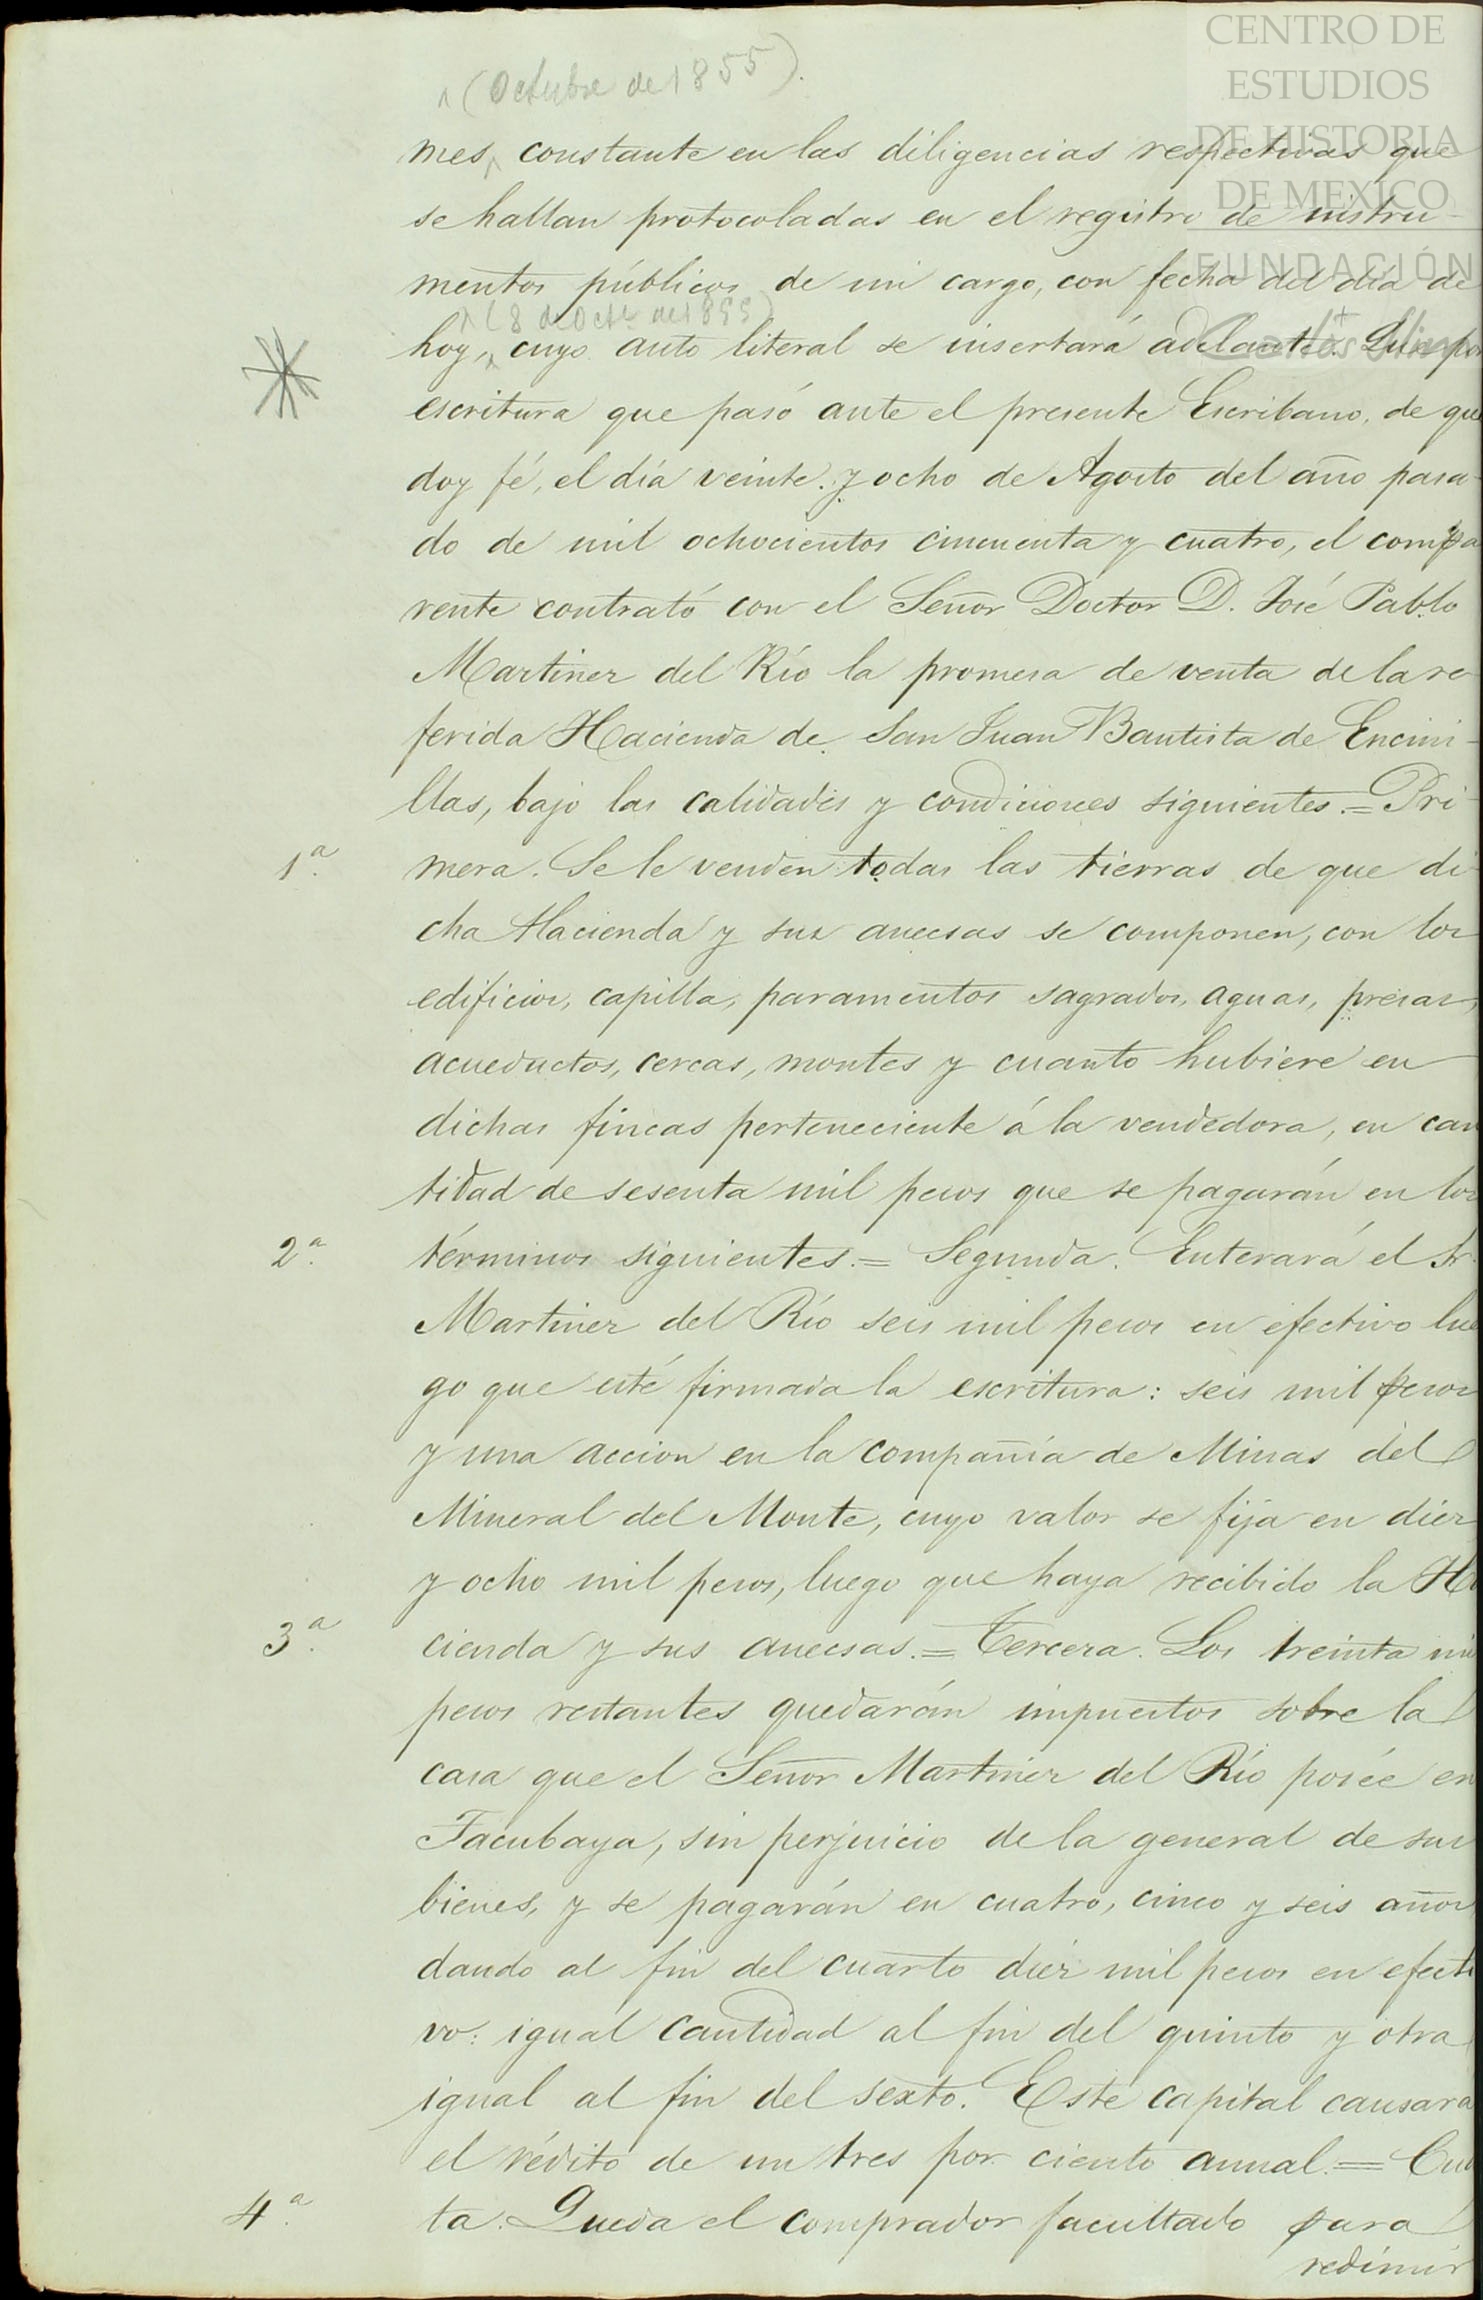 CENTRO DE
ESTUDIOS
DE HISTORIA
DE MEXICO
FUNDACIÓN
Carlos Slim
^ (Octubre de 1855).
mes, constante en las diligencias respectivas que
se hallan protocoladas en el registro de instru-
mentos públicos de mi cargo, con fecha del día de
^ (8 de Octe. de 1855)
hoy, cuyo auto literal se insertará adelante. Que por
escritura que pasó ante el presente Escribano, de que
doy fé, el día veinte y ocho de Agosto del año pasa-
do de mil ochocientos cincuenta y cuatro, el compa
rente contrató con el Señor Doctor D. José Pablo
Martinez del Río la promesa de venta de la re-
ferida Hacienda de San Juan Bautista de Encini-
llas, bajo las calidades y condiciones siguientes.= Pri-
1ª. mera. Se le venden todas las tierras de que di-
cha Hacienda y sus anecsas se componen, con los
edificios, capilla, paramentos sagrados, aguas, presas,
acueductos, cercas, montes y cuanto hubiere en
dichas fincas perteneciente á la vendedora, en can
tidad de sesenta mil pesos que se pagarán en los
2ª. términos siguientes.= Segunda. Enterará el Sr.
Martinez del Río seis mil pesos en efectivo lue
go que esté firmada la escritura: seis mil pesos
y una accion en la compañía de Minas del
Mineral del Monte, cuyo valor se fija en diez
y ocho mil pesos, luego que haya recibido la Ha
3ª. cienda y sus anecsas.= Tercera. Los treinta mil
pesos restantes quedarán impuestos sobre la
casa que el Señor Martinez del Río posée en
Tacubaya, sin perjuicio de la general de sus
bienes, y se pagarán en cuatro, cinco y seis años
dando al fin del cuarto diez mil pesos en efecti
vo: igual cantidad al fin del quinto y otra
igual al fin del sexto. Este capital causará
el rédito de un tres por ciento anual.= Cua
4ª. ta. Queda el comprador facultado para
redimir